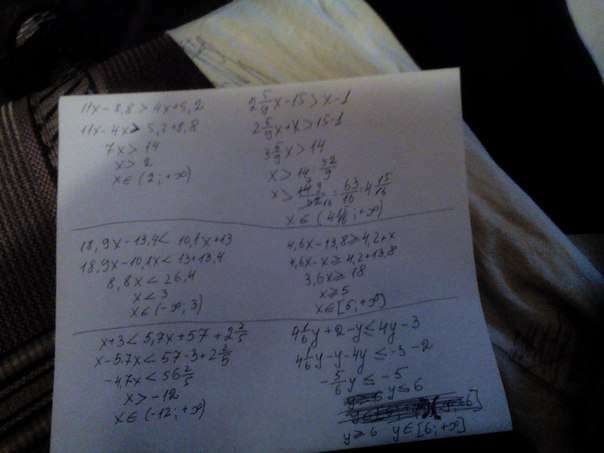 11x-8,8>4x+5,2
11x-4x>5,2+8,8
7x>14
x>2
x∈(2;+∞)
2 5/9x-15>x-1
2 5/9x+x>15-1
3 5/9x>14
x>14:32/9
x∈(4 15/16;+∞)
18,9x-13,4<10,1x+13
18,9x-10,1x<13+13,4
8,8x<26,4
x<3
x∈(-∞;3)
4,6x-13,8≥4,2+x
4,6x-x≥4,2+13,8
3,6x≥18
x≥5
x∈[5;+∞)
x+3<5,7x+57+2 2/5
x-5,7x<57-3+2 2/5
-4,7x<56 2/5
x>-12
x∈(-12;+∞)
4 1/6y+2-y≤4y-3
4 1/6y-y-4y≤-3-2
-5/6y≤-5
y≤6
y≥6 y∈[6;+∞)